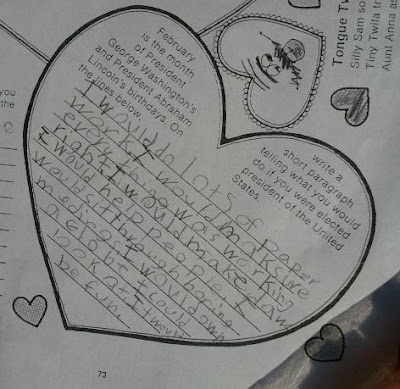 February
is the month
of President
George Washington's
and President Abraham
Lincoln's birthdays. On
the lines below,
write a
short paragraph
telling what you would
do if you were elected
president of the United
States.
I would do lots of paper
work I would maksire
everything was working
right I would make law
I would help people I
would sit through boring
meedings I would own
a globe I could
look at It would
be fun.
Tongue Tw
Silly Sam so
Tiny Twila tr
Aunt Anna as
you
the
73